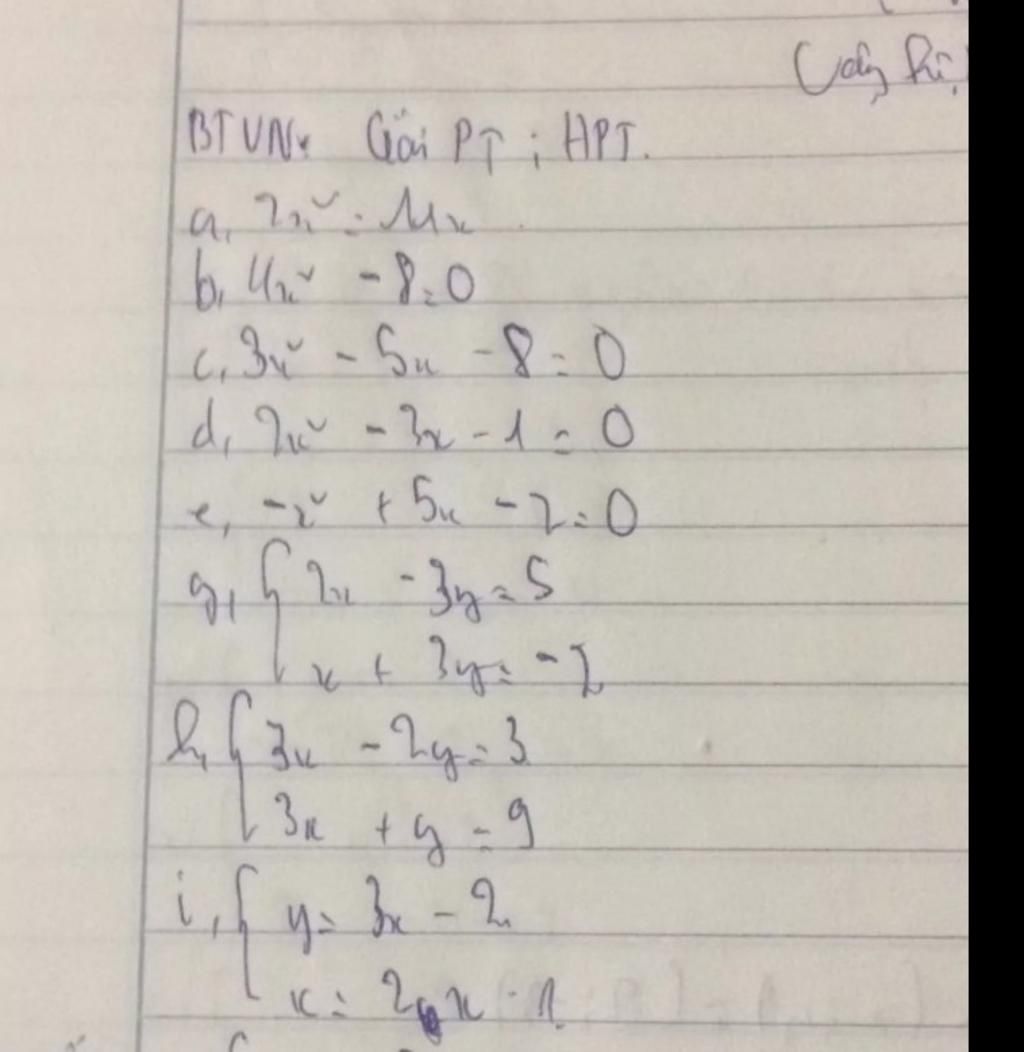 (cộng
BTVN: Giải PT; HPT.
a, 2x² = 11x
b, 4x² - 8 = 0
c, 3x² - 5x - 8 = 0
d, 2x² - 3x - 1 = 0
e, -x² + 5x - 2 = 0
g, { 2x - 3y = 5
x + 3y = -2
h, { 3x - 2y = 3
3x + y = 9
i, { y = 3x - 2
x = 2x - 1